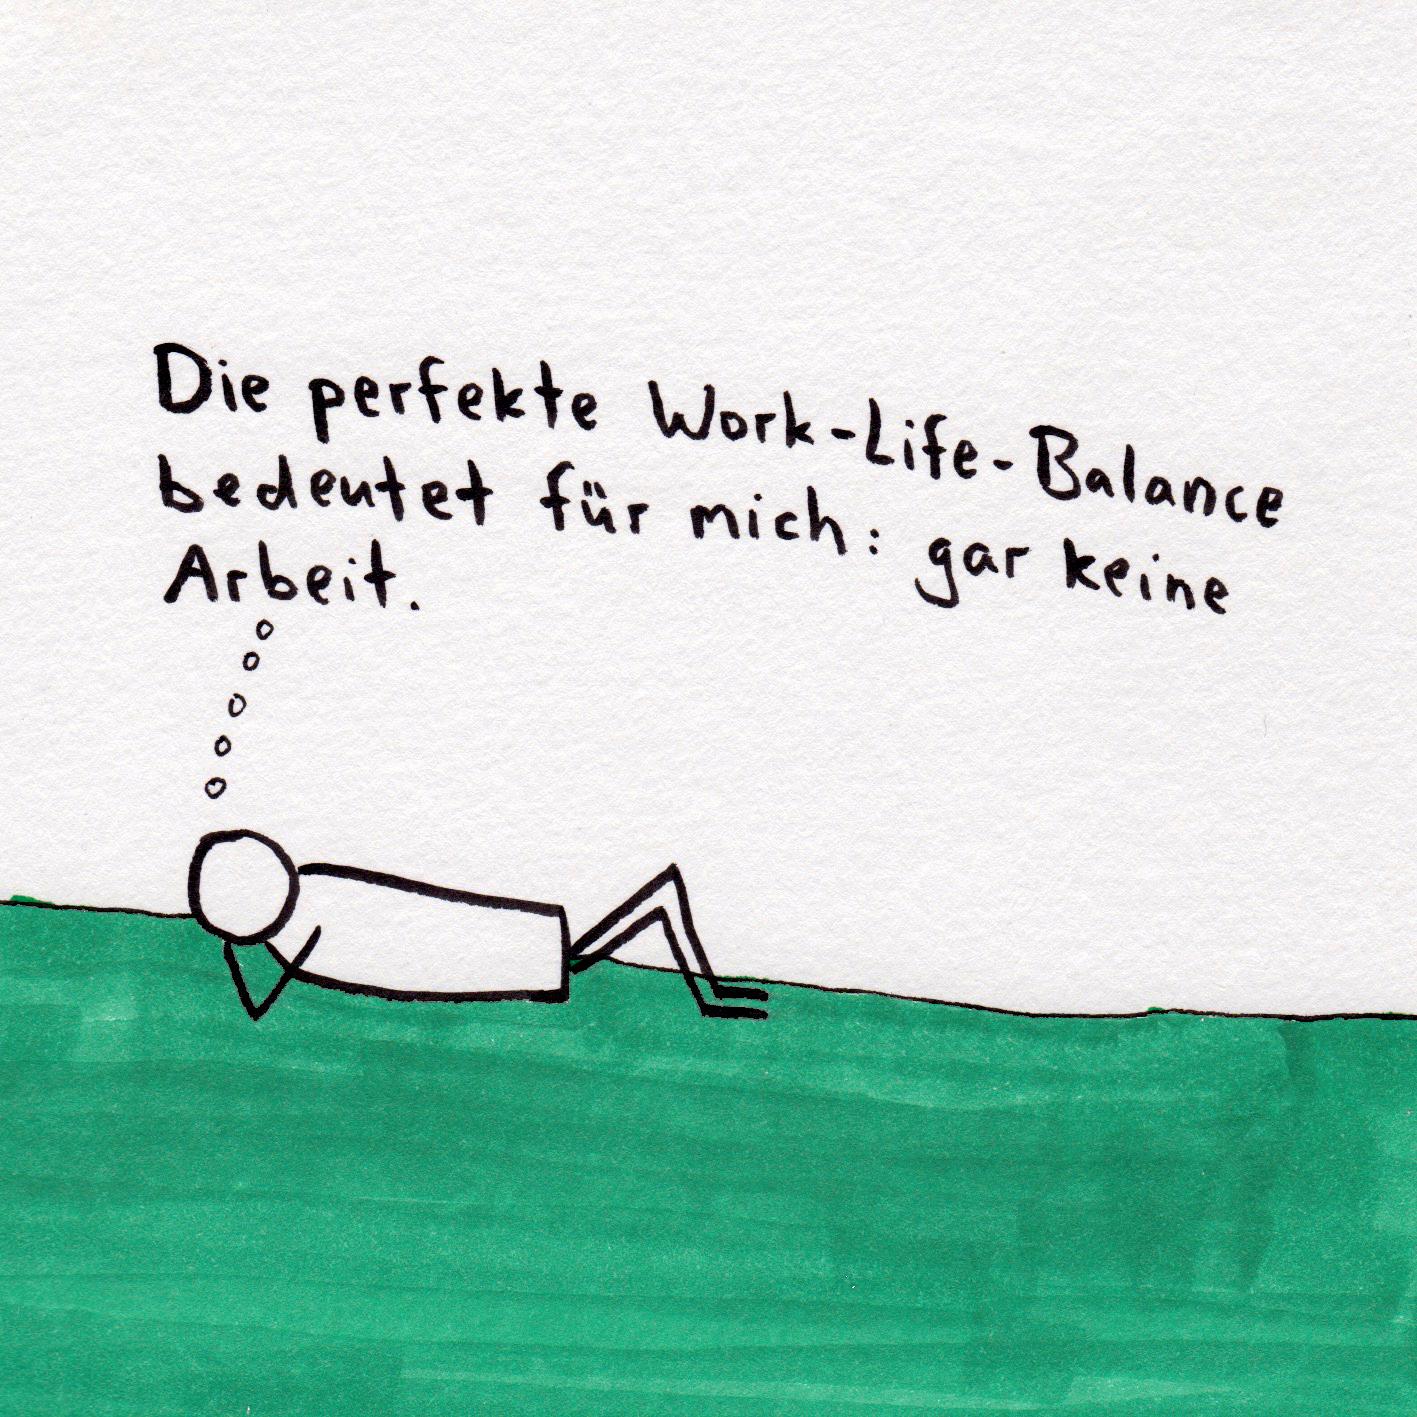 Die perfekte Work-Life-Balance
bedeutet für mich: gar keine
Arbeit.